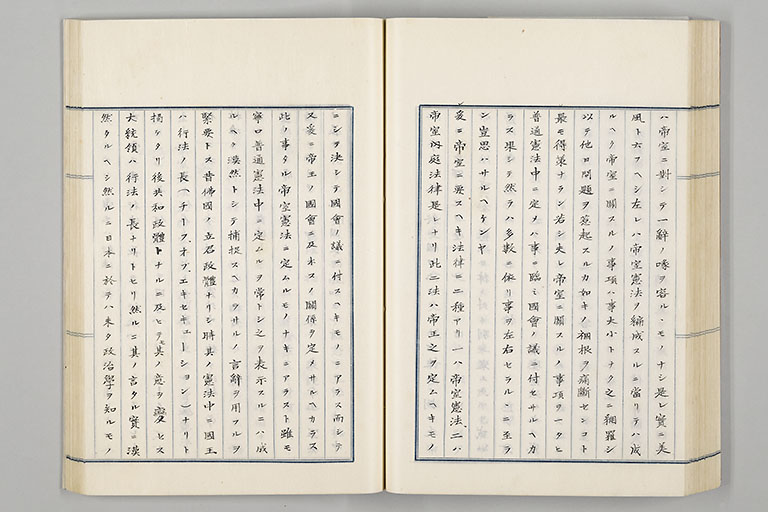 ハ帝室ニ對シテ一辭ノ喙ヲ容ルヽモノナシ是レ實ニ美
風ト云フヘシ左レハ帝室憲法ヲ編成スルニ當リテハ成
ルヘク帝室ニ關スルノ事項ハ事大小トナク之ニ網羅シ
以テ他日問題ヲ惹起スルカ如キノ禍根ヲ痛斷センコト
最モ得策ナラン若シ夫レ帝室ニ關スルノ事項ヲ一タヒ
普通憲法中ニ定メハ事ニ臨ミ國會ノ議ニ付セサルヘカ
ラス果シテ然ラハ多數ニ依リ事ヲ左右セラルヽニ至ラ
ン豈思ハサルヘケンヤ
爰ニ帝室ニ要スヘキ法律ニ二種アリ一ハ帝室憲法二ハ
帝室内庭法律是レナリ此二法ハ帝王之ヲ定ムヘキモノ
ニシヲ決シテ國會ノ議ニ付スヘキモノニアラス而シテ
又爰ニ帝王ノ國會ニ及ホスノ關係ヲ定メサルヘカラス
此ノ事タル帝室憲法ニ定ムルモノナキニアラスト雖モ
寧ロ普通憲法中ニ定ムルヲ常トシ之ヲ表示スルニハ成
ルヘク漠然トシテ捕捉スヘカラサルノ言辭ヲ用フルヲ
緊要トス昔佛國ノ立君政體ナリシ時其ノ憲法中ニ國王
ハ行法ノ長(チーフ、オブ、エキセキューション)ナリト
掲ケタリ後共和政體トナルニ及ヒテモ其ノ意ヲ變ヒス
大統領ハ行法ノ長ナリトセリ然ルニ其ノ言タル實ニ漠
然タルヘシ然ルニ日本ニ於テハ未タ政治學ヲ知ルモノ